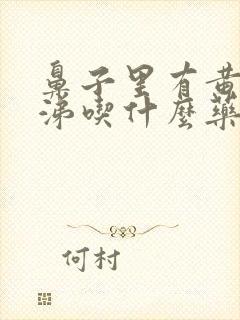 鼻子里有黄
涕喫什麼藥
何村